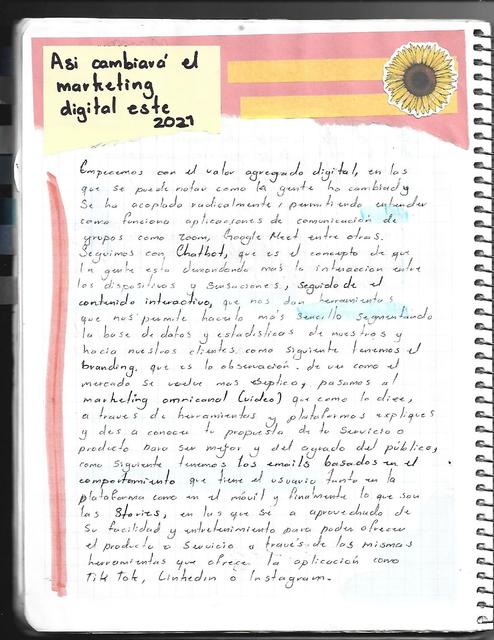 Asi cambiará el
marketing
digital este
2021
Empecemos con el valor agregado digital, en las
que se puede notar como la gente ha cambiado y
Se ha acoplado radicalmente, permitiendo entender
como funciona aplicaciones de comunicación de
grupos como zoom, Google Meet entre otras.
Seguimos con Chatbot, que es el concepto de que
la gente esta demandando mas la interaccion entre
los dispositivos y sensaciones, seguido de el
contenido interactivo, que nos dan herramientas
que nos permite hacerlo más sencillo segmentando
la base de datos y estadisticas de nuestros y
hacia nuestros clientes. como siguiente tenemos el
branding, que es la observación de ver como el
mercado se vuelve mas séptico, pasamos al
marketing omnicanal (video) que como lo dice,
a traves de herramientas y plataformas expliques
y des a conocer tu propuesta de tu servicio o
producto para ser mejor y del agrado del público,
como siguiente tenemos los emails basados en el
comportamiento que tiene el usuario tanto en la
plataforma como en el móvil y finalmente lo que son
las Stories, en las que se a aprovechado de
Su facilidad y entretenimiento para poder ofrecer
el producto o servicio a través de las mismas
herramientas que ofrece la aplicación como
Tik Tok, Linkedin ó Instagram.